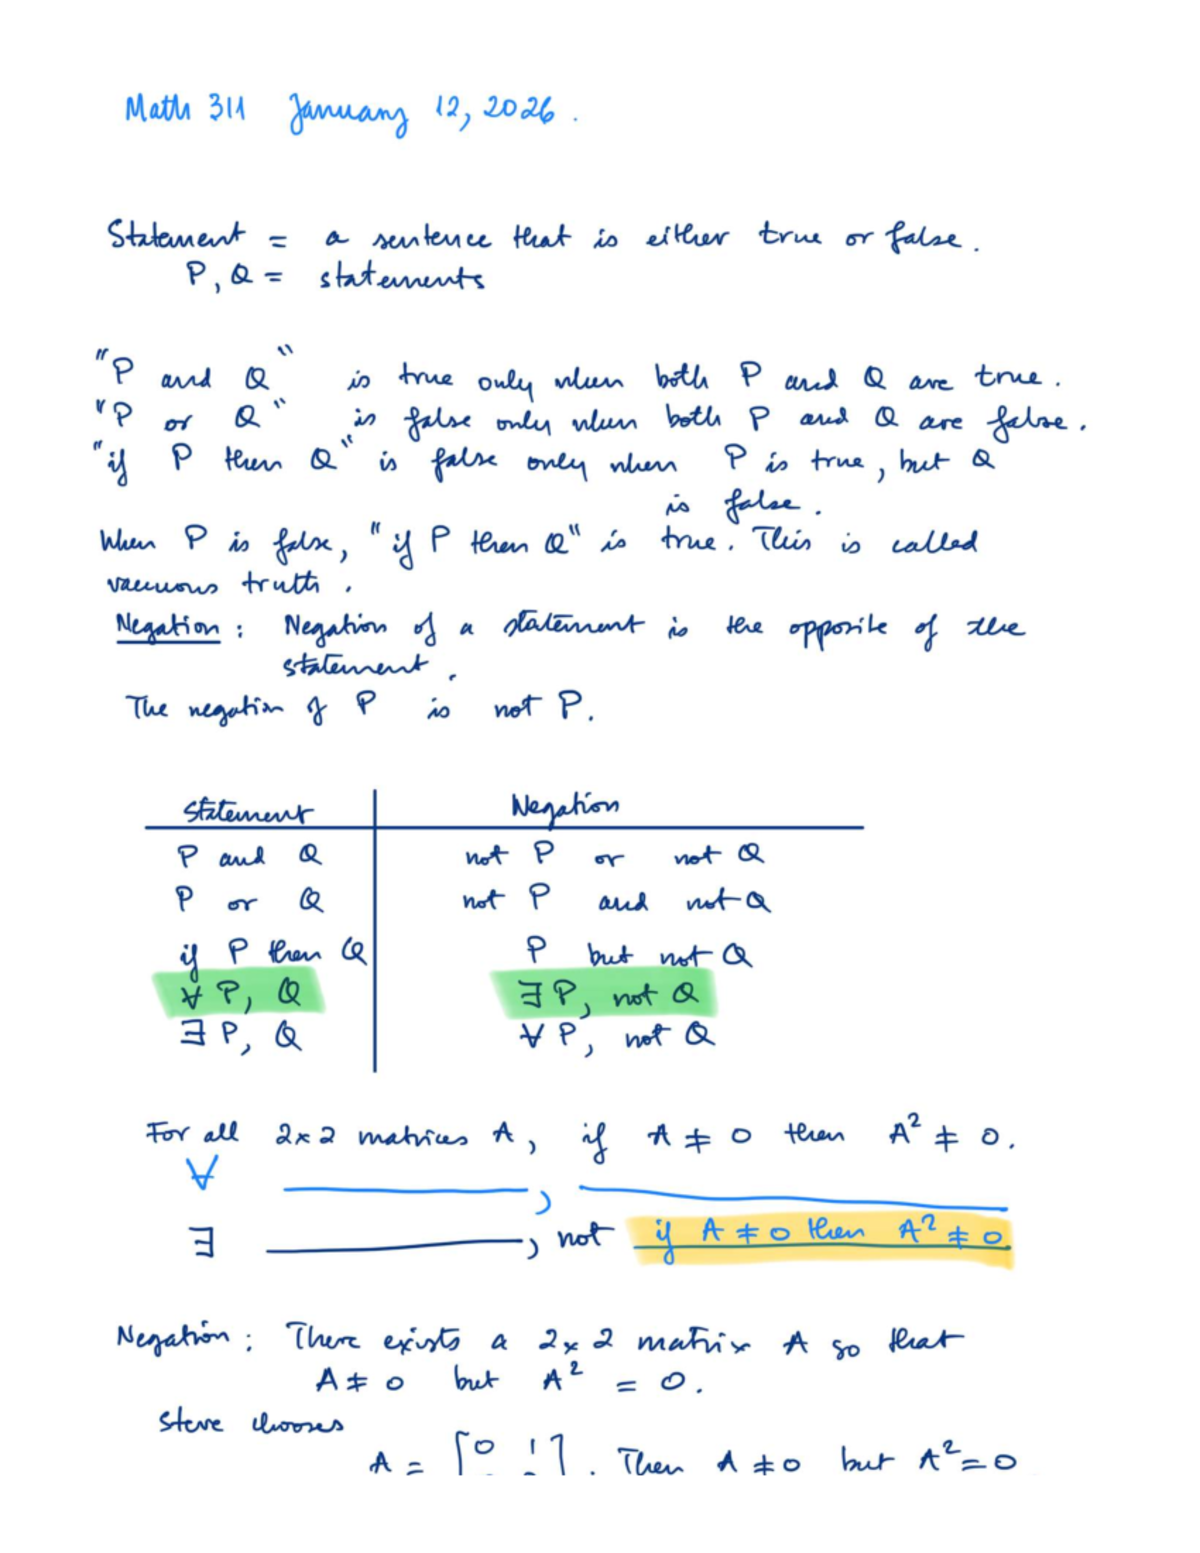 Math 311 January 12, 2026.
Statement = a sentence that is either true or false.
P, Q = statements
"P and Q" is true only when both P and Q are true.
"P or Q" is false only when both P and Q are false.
"if P then Q" is false only when P is true, but Q
is false.
When P is false, "if P then Q" is true. This is called
vacuous truth.
Negation: Negation of a statement is the opposite of the
statement.
The negation of P is not P.
Statement Negation
P and Q not P or not Q
P or Q not P and not Q
if P then Q P but not Q
∀ P, Q ∃ P, not Q
∃ P, Q ∀ P, not Q
For all 2×2 matrices A, if A ≠ 0 then A² ≠ 0.
∀ ,
∃ , not if A ≠ 0 then A² ≠ 0
Negation: There exists a 2×2 matrix A so that
A ≠ 0 but A² = 0.
Steve chooses
A = [0 1]. Then A ≠ 0 but A² = 0